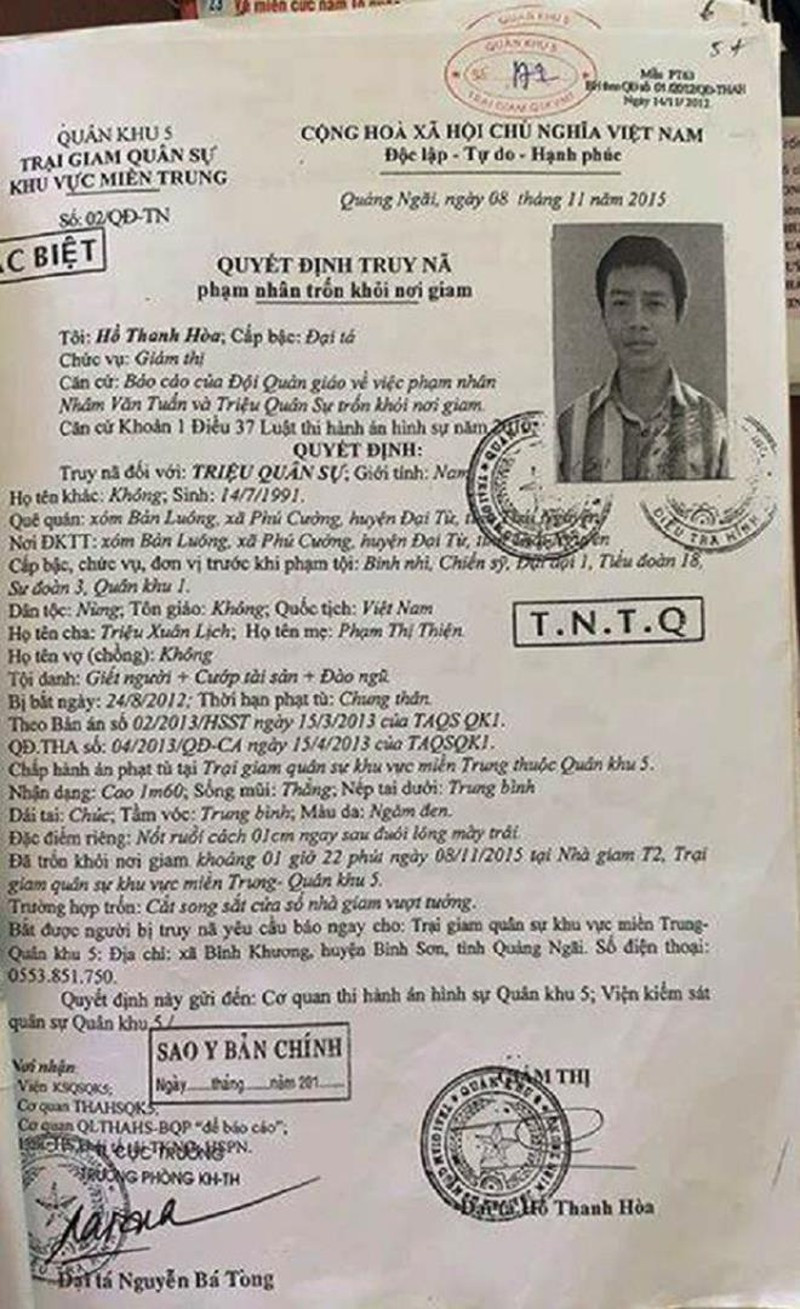 23 Tê miền cực nam
QUÂN KHU 5
QUÂN KHU 5
SỐ
TRẠI GIAM QSKVMT
6
5 +
Mẫu PT63
BH theo QĐ số 01/2012/QĐ-THAH
Ngày 14/11/2012
QUÂN KHU 5
TRẠI GIAM QUÂN SỰ
KHU VỰC MIỀN TRUNG
Số: 02/QĐ-TN
CỘNG HOÀ XÃ HỘI CHỦ NGHĨA VIỆT NAM
Độc lập - Tự do - Hạnh phúc
Quảng Ngãi, ngày 08 tháng 11 năm 2015
ẶC BIỆT
QUYẾT ĐỊNH TRUY NÃ
phạm nhân trốn khỏi nơi giam
Tôi: Hồ Thanh Hòa; Cấp bậc: Đại tá
Chức vụ: Giám thị
Căn cứ: Báo cáo của Đội Quản giáo về việc phạm nhân
Nhâm Văn Tuấn và Triệu Quân Sự trốn khỏi nơi giam.
Căn cứ Khoản 1 Điều 37 Luật thi hành án hình sự năm
QUYẾT ĐỊNH:
Truy nã đối với: TRIỆU QUÂN SỰ; Giới tính: Nam
Họ tên khác: Không; Sinh: 14/7/1991.
Quê quán: xóm Bản Luông, xã Phú Cường, huyện Đại Từ, Nguyên
Nơi ĐKTT: xóm Bản Luông, xã Phú Cường, huyện Đại Từ, Nguyên
ĐIỀU TRA HÌNH
Cấp bậc, chức vụ, đơn vị trước khi phạm tội: Binh nhì, Chiến sỹ, Đại đội 1, Tiểu đoàn 18,
Sư đoàn 3, Quân khu 1.
Dân tộc: Nùng; Tôn giáo: Không; Quốc tịch: Việt Nam
T.N.T.Q
Họ tên cha: Triệu Xuân Lịch; Họ tên mẹ: Phạm Thị Thiện.
Họ tên vợ (chồng): Không
Tội danh: Giết người + Cướp tài sản + Đào ngũ
Bị bắt ngày: 24/8/2012; Thời hạn phạt tù: Chung thân.
Theo Bản án số 02/2013/HSST ngày 15/3/2013 của TAQS QK1.
QĐ.THA số: 04/2013/QĐ-CA ngày 15/4/2013 của TAQSQK1.
Chấp hành án phạt tù tại Trại giam quân sự khu vực miền Trung thuộc Quân khu 5.
Nhận dạng: Cao 1m60; Sống mũi: Thẳng; Nếp tai dưới: Trung bình
Dái tai: Chúc; Tầm vóc: Trung bình; Màu da: Ngăm đen.
Đặc điểm riêng: Nốt ruồi cách 01cm ngay sau đuôi lông mày trái.
Đã trốn khỏi nơi giam khoảng 01 giờ 22 phút ngày 08/11/2015 tại Nhà giam T2, Trại
giam quân sự khu vực miền Trung- Quân khu 5.
Trường hợp trốn: Cắt song sắt cửa sổ nhà giam vượt tường.
Bắt được người bị truy nã yêu cầu báo ngay cho: Trại giam quân sự khu vực miền Trung-
Quân khu 5; Địa chỉ: xã Bình Khương, huyện Bình Sơn, tỉnh Quảng Ngãi. Số điện thoại:
0553.851.750.
Quyết định này gửi đến: Cơ quan thi hành án hình sự Quân khu 5; Viện kiểm sát
quân sự Quân khu 5./.
SAO Y BẢN CHÍNH
Ngày......tháng......năm 201......
Nơi nhận
Viện KSQSQK5;
Cơ quan THAHSQK5;
Cơ quan QLTHAHS-BQP "để báo cáo";
CỤC TRƯỞNG
TRƯỞNG PHÒNG KH-TH
Đại tá Nguyễn Bá Tòng
GIÁM THỊ
Đại tá Hồ Thanh Hòa